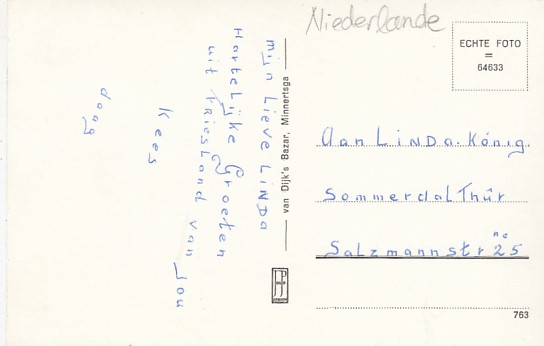 Niederlande
ECHTE FOTO
=
64633
mijn Lieve LiNDa
Hartelijke Groeten
uit FriesLand van Jou
Kees
daag
van Dijk's Bazar, Minnertsga
Aan LiNDa. König.
Sommerdal Thür
Salzmannstr no 25
763